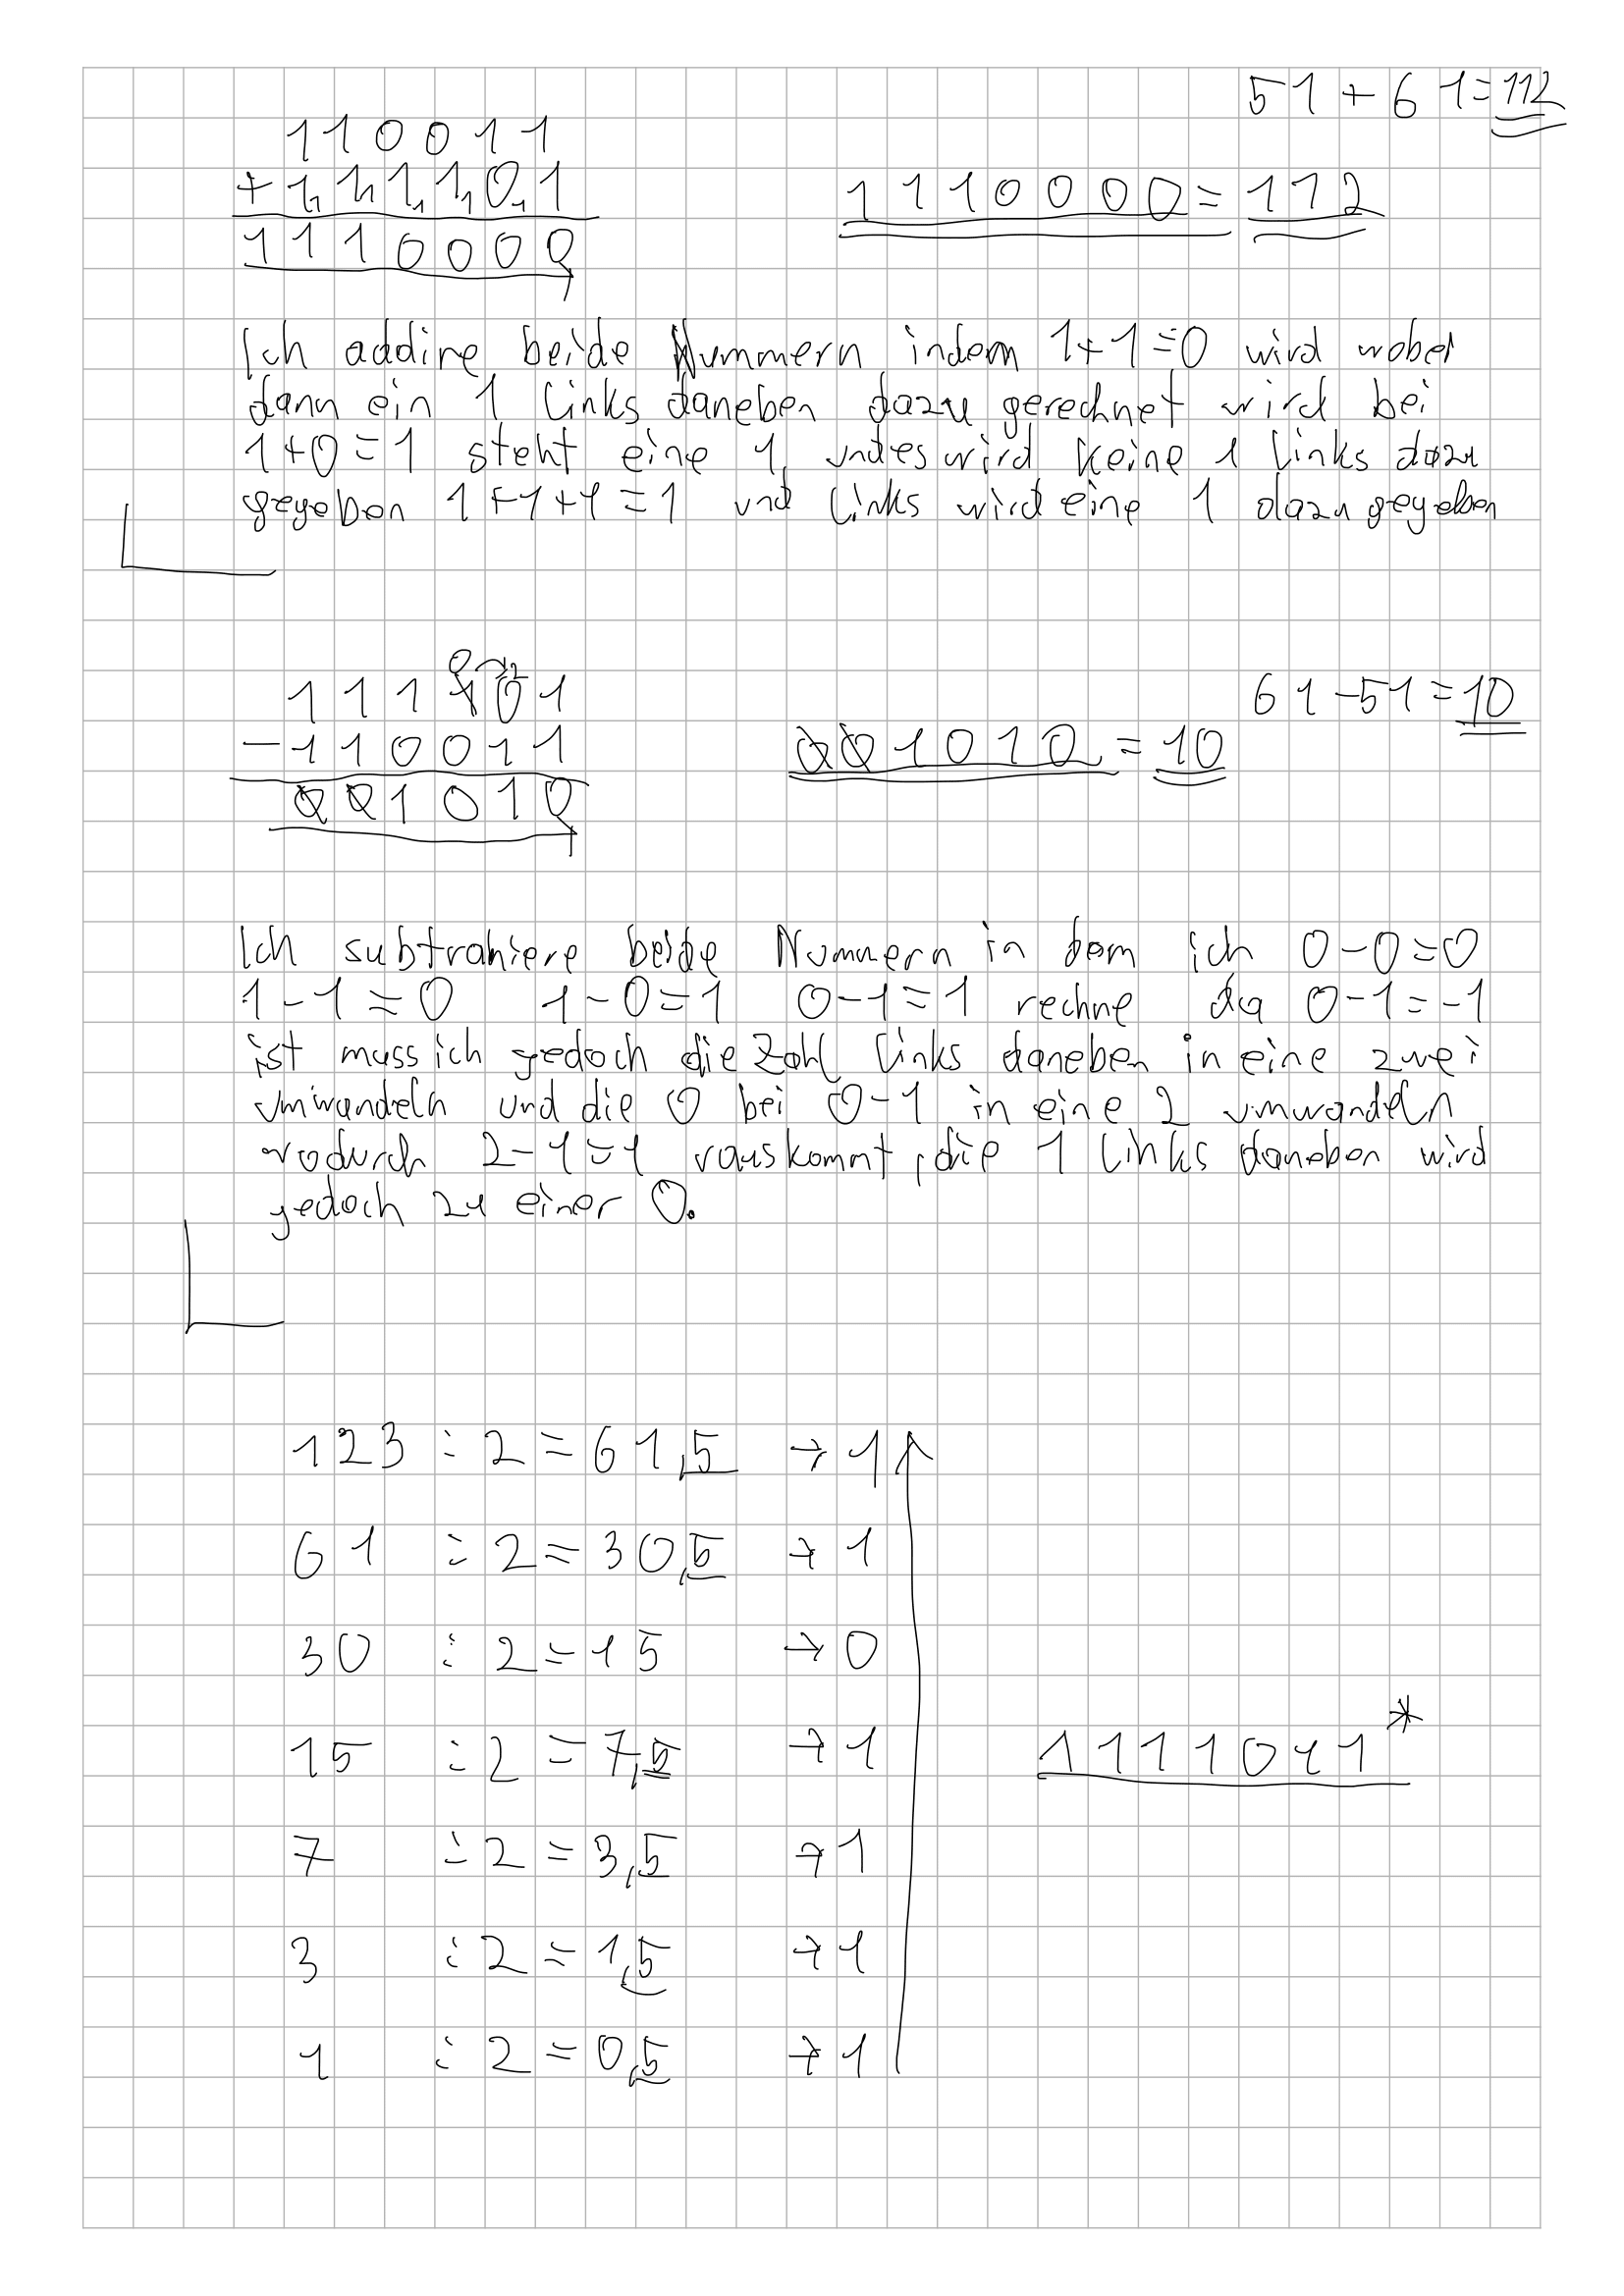 51+61=112
110011
+111101
1110000
1110000=112
Ich addire beide Nummern indem 1+1=0 wird wobei
dann ein 1 links daneben dazu gerechnet wird bei
1+0=1 steht eine 1, und es wird keine 1 links dazu
gegeben 1+1+1=1 und links wird eine 1 dazu gegeben
0 2
111101
61-51=10
-110011
001010
001010=10
Ich subtrahiere beide Nummern in dem ich 0-0=0
1-1=0 1-0=1 0-1=1 rechne da 0-1=-1
ist muss ich jedoch die Zahl links daneben in eine zwei
umwandeln und die 0 bei 0-1 in eine 2 umwandeln
wodurch 2-1=1 rauskommt, die 1 links daneben wird
jedoch zu einer 0.
123 : 2 = 61,5 → 1
61 : 2 = 30,5 → 1
30 : 2 = 15 → 0
15 : 2 = 7,5 → 1
1111011*
7 : 2 = 3,5 → 1
3 : 2 = 1,5 → 1
1 : 2 = 0,5 → 1